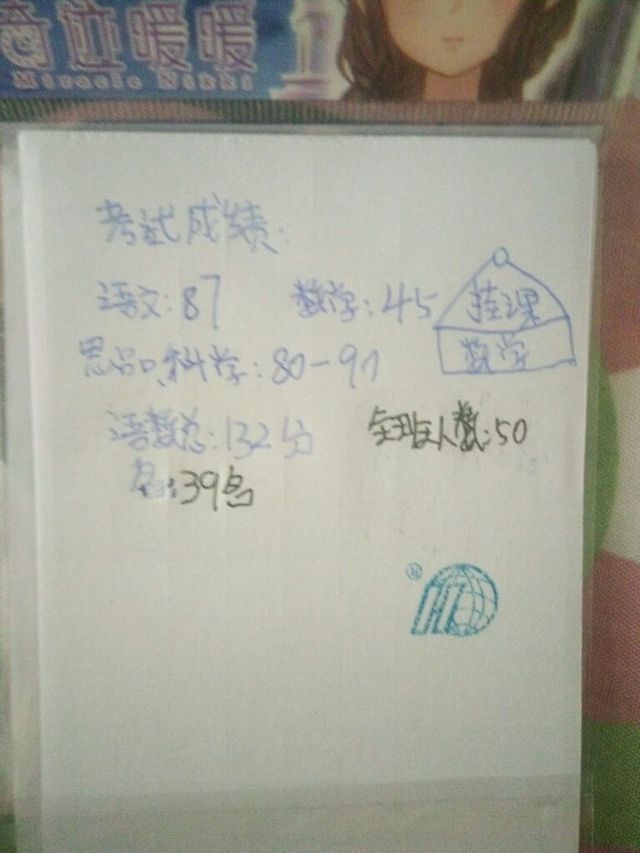 奇迹暖暖
Miracle Nikki
考试成绩:
语文:87 数学:45 挂课
数学
思品、科学:80-91
语数总:132分 全班人数:50
名:39点
®